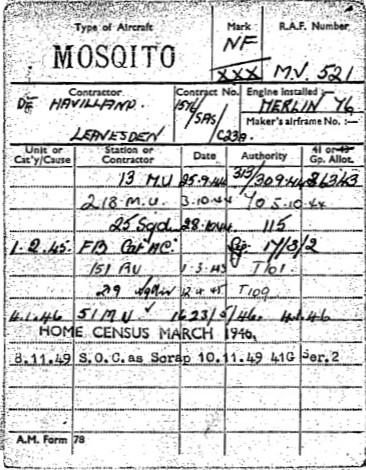 Type of Aircraft
Mark
R.A.F. Number
MOSQITO
NF
XXX
M.V. 521
Contractor
Contract No.
Engine Installed :—
DE HAVILLAND.
1576/
MERLIN 76
SAS/
Maker's airframe No. :—
LEAVESDEN
C23A.
Unit or Cat'y/Cause
Station or Contractor
Date
Authority
41 or 43 Gp. Allot.
13 M.U 25.9.44
218 M.U. 3.10.44 5.10.44
25 Sqdn 28.10.44 115
1.2.45. FB Cat AC. 17/3/2
151 RU 1.3.45 T101.
29 12.4.45 T109
4.1.46 51 MU 1623/5/46. 4.1.46
HOME CENSUS MARCH 1946.
8.11.49 S.O.C. as Scrap 10.11.49 41G Ser.2
A.M. Form 78